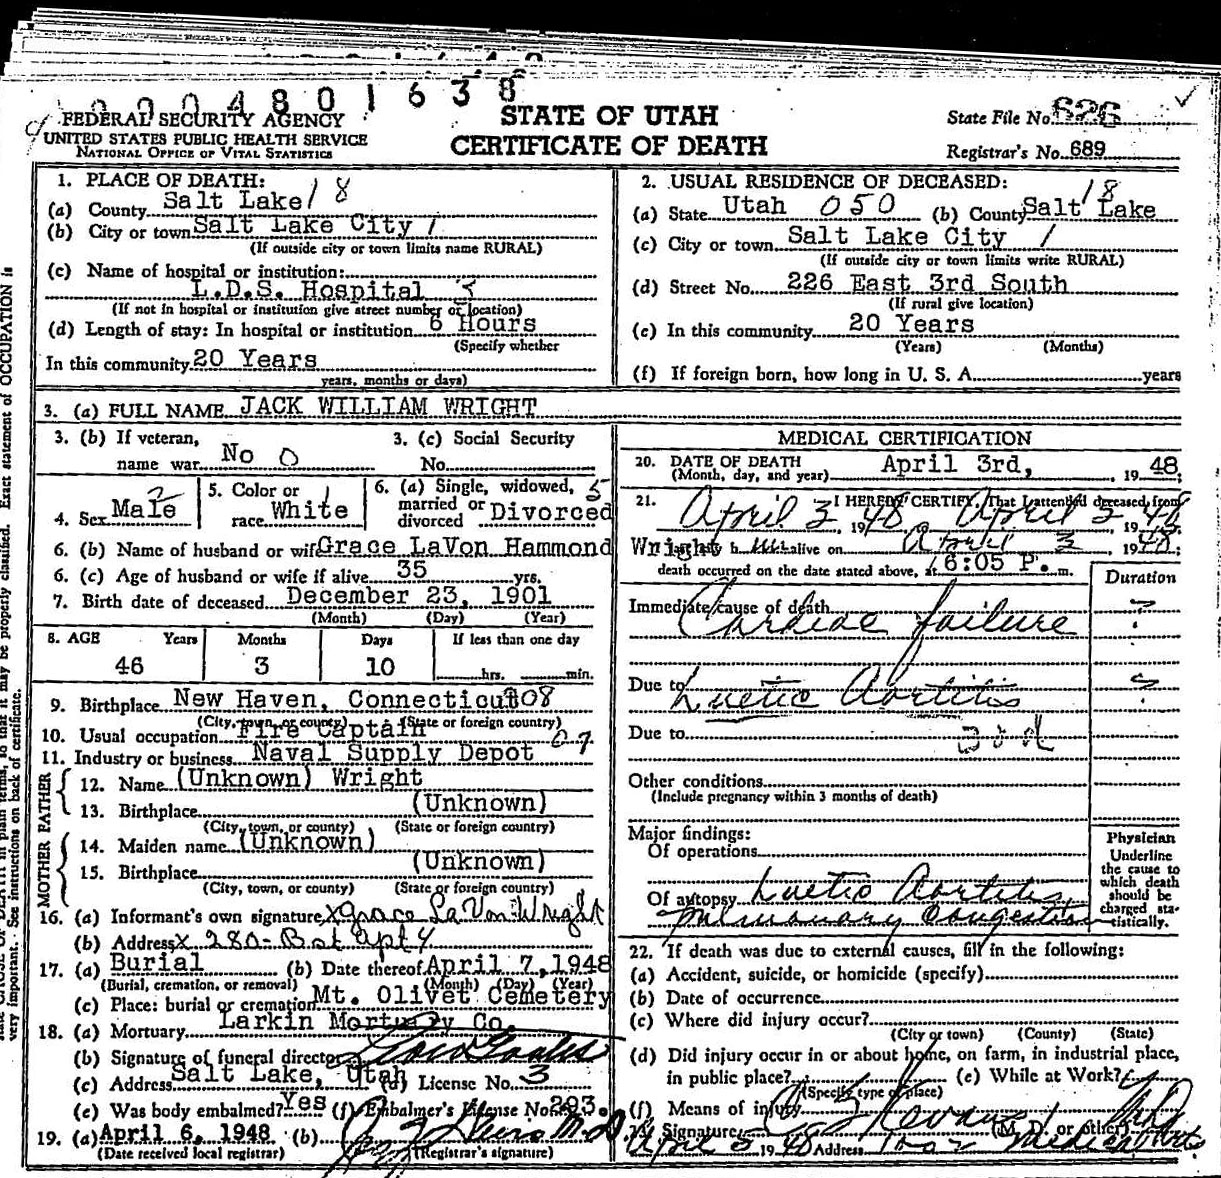 0004801638
FEDERAL SECURITY AGENCY
UNITED STATES PUBLIC HEALTH SERVICE
NATIONAL OFFICE OF VITAL STATISTICS
STATE OF UTAH
CERTIFICATE OF DEATH
State File No. 626
Registrar's No. 689
1. PLACE OF DEATH:
(a) County Salt Lake 18
(b) City or town Salt Lake City 1
(If outside city or town limits name RURAL)
(c) Name of hospital or institution:
L.D.S. Hospital
(If not in hospital or institution give street number or location)
(d) Length of stay: In hospital or institution 6 Hours
(Specify whether
In this community 20 Years
years, months or days)
2. USUAL RESIDENCE OF DECEASED:
(a) State Utah 050 (b) County Salt Lake 18
(c) City or town Salt Lake City 1
(If outside city or town limits write RURAL)
(d) Street No. 226 East 3rd South
(If rural give location)
(e) In this community 20 Years
(Years) (Months)
(f) If foreign born, how long in U. S. A. years
3. (a) FULL NAME JACK WILLIAM WRIGHT
3. (b) If veteran, name war No 0
3. (c) Social Security No.
4. Sex Male 2
5. Color or race White 1
6. (a) Single, widowed, married or divorced Divorced 5
6. (b) Name of husband or wife Grace LaVon Hammond Wright
6. (c) Age of husband or wife if alive 35 yrs.
7. Birth date of deceased December 23, 1901
(Month) (Day) (Year)
8. AGE Years Months Days If less than one day
46 3 10 hrs. min.
9. Birthplace New Haven, Connecticut 08
(City, town, or county) (State or foreign country)
10. Usual occupation Fire Captain
11. Industry or business Naval Supply Depot
FATHER
12. Name (Unknown) Wright
13. Birthplace (Unknown)
(City, town, or county) (State or foreign country)
MOTHER
14. Maiden name (Unknown)
15. Birthplace (Unknown)
(City, town, or county) (State or foreign country)
16. (a) Informant's own signature x Grace LaVon Wright
(b) Address x 280- Apt 4
17. (a) Burial (b) Date thereof April 7, 1948
(Burial, cremation, or removal) (Month) (Day) (Year)
(c) Place: burial or cremation Mt. Olivet Cemetery
18. (a) Mortuary Larkin Mortuary Co.
(b) Signature of funeral director
(c) Address Salt Lake, Utah (d) License No. 3
(e) Was body embalmed? Yes (f) Embalmer's License No. 293.
19. (a) April 6, 1948 (b) M.D.
(Date received local registrar) (Registrar's signature)
MEDICAL CERTIFICATION
20. DATE OF DEATH April 3rd, 1948
(Month, day, and year)
21. I HEREBY CERTIFY, That I attended deceased from
April 3 1948 April 3 1948
alive on April 3 1948;
death occurred on the date stated above, at 6:05 P. m.
Duration
Immediate cause of death Cardiac failure ?
Due to Luetic Aortitis ?
Due to
Other conditions
(Include pregnancy within 3 months of death)
Major findings:
Of operations
Of autopsy Luetic Aortitis,
Pulmonary Congestion
Physician
Underline
the cause to
which death
should be
charged sta-
tistically.
22. If death was due to external causes, fill in the following:
(a) Accident, suicide, or homicide (specify)
(b) Date of occurrence
(c) Where did injury occur?
(City or town) (County) (State)
(d) Did injury occur in or about home, on farm, in industrial place,
in public place? (e) While at Work?
(Specify type of place)
(f) Means of injury
Signature (M. D. or other)
April 5 1948 Address Medical Arts
Exact statement of OCCUPATION is
very important. See instructions on back of certificate.